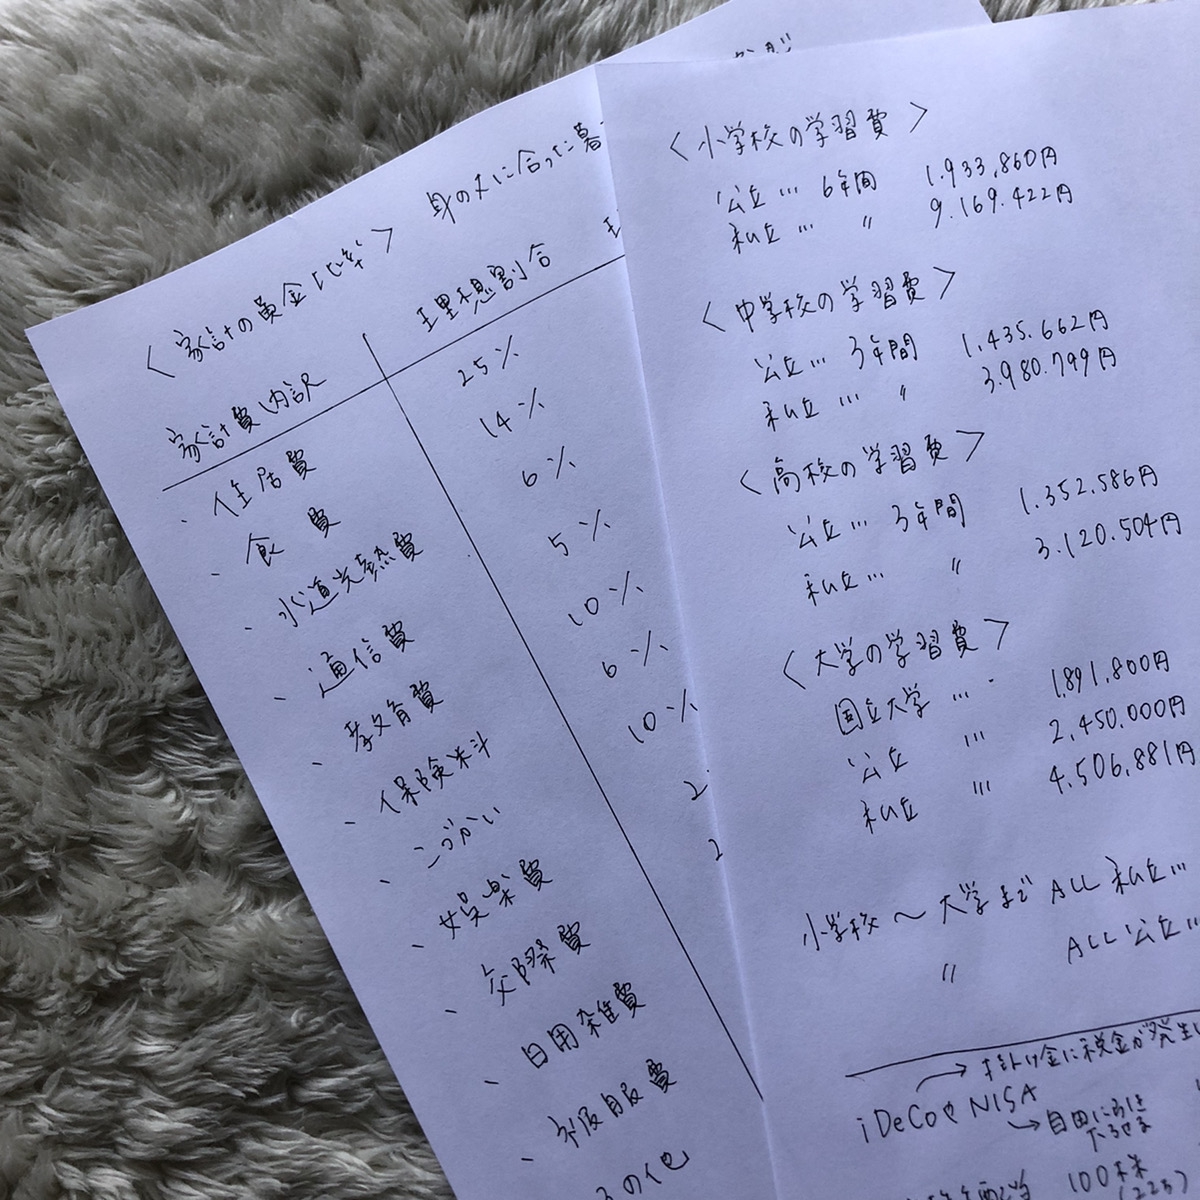 <家計の黄金比率> 身の丈に合った暮
家計費内訳 理想割合
・住居費 25%
・食費 14%
・水道光熱費 6%
・通信費 5%
・教育費 10%
・保険料 6%
・こづかい 10%
・娯楽費 2
・交際費 2
・日用雑費
・被服費
その他
<小学校の学習費>
公立… 6年間 1.933,860円
私立… 〃 9.169.422円
<中学校の学習費>
公立… 3年間 1.435.662円
私立… 〃 3.980.799円
<高校の学習費>
公立… 3年間 1.352.586円
私立… 〃 3.120.504円
<大学の学習費>
国立大学 … 1.891,800円
公立 … 2,450.000円
私立 … 4.506,881円
小学校〜大学まで ALL 私立…
〃 ALL 公立…
→掛け金に税金が発生し
iDeCoやNISA
→自由に引き
100株